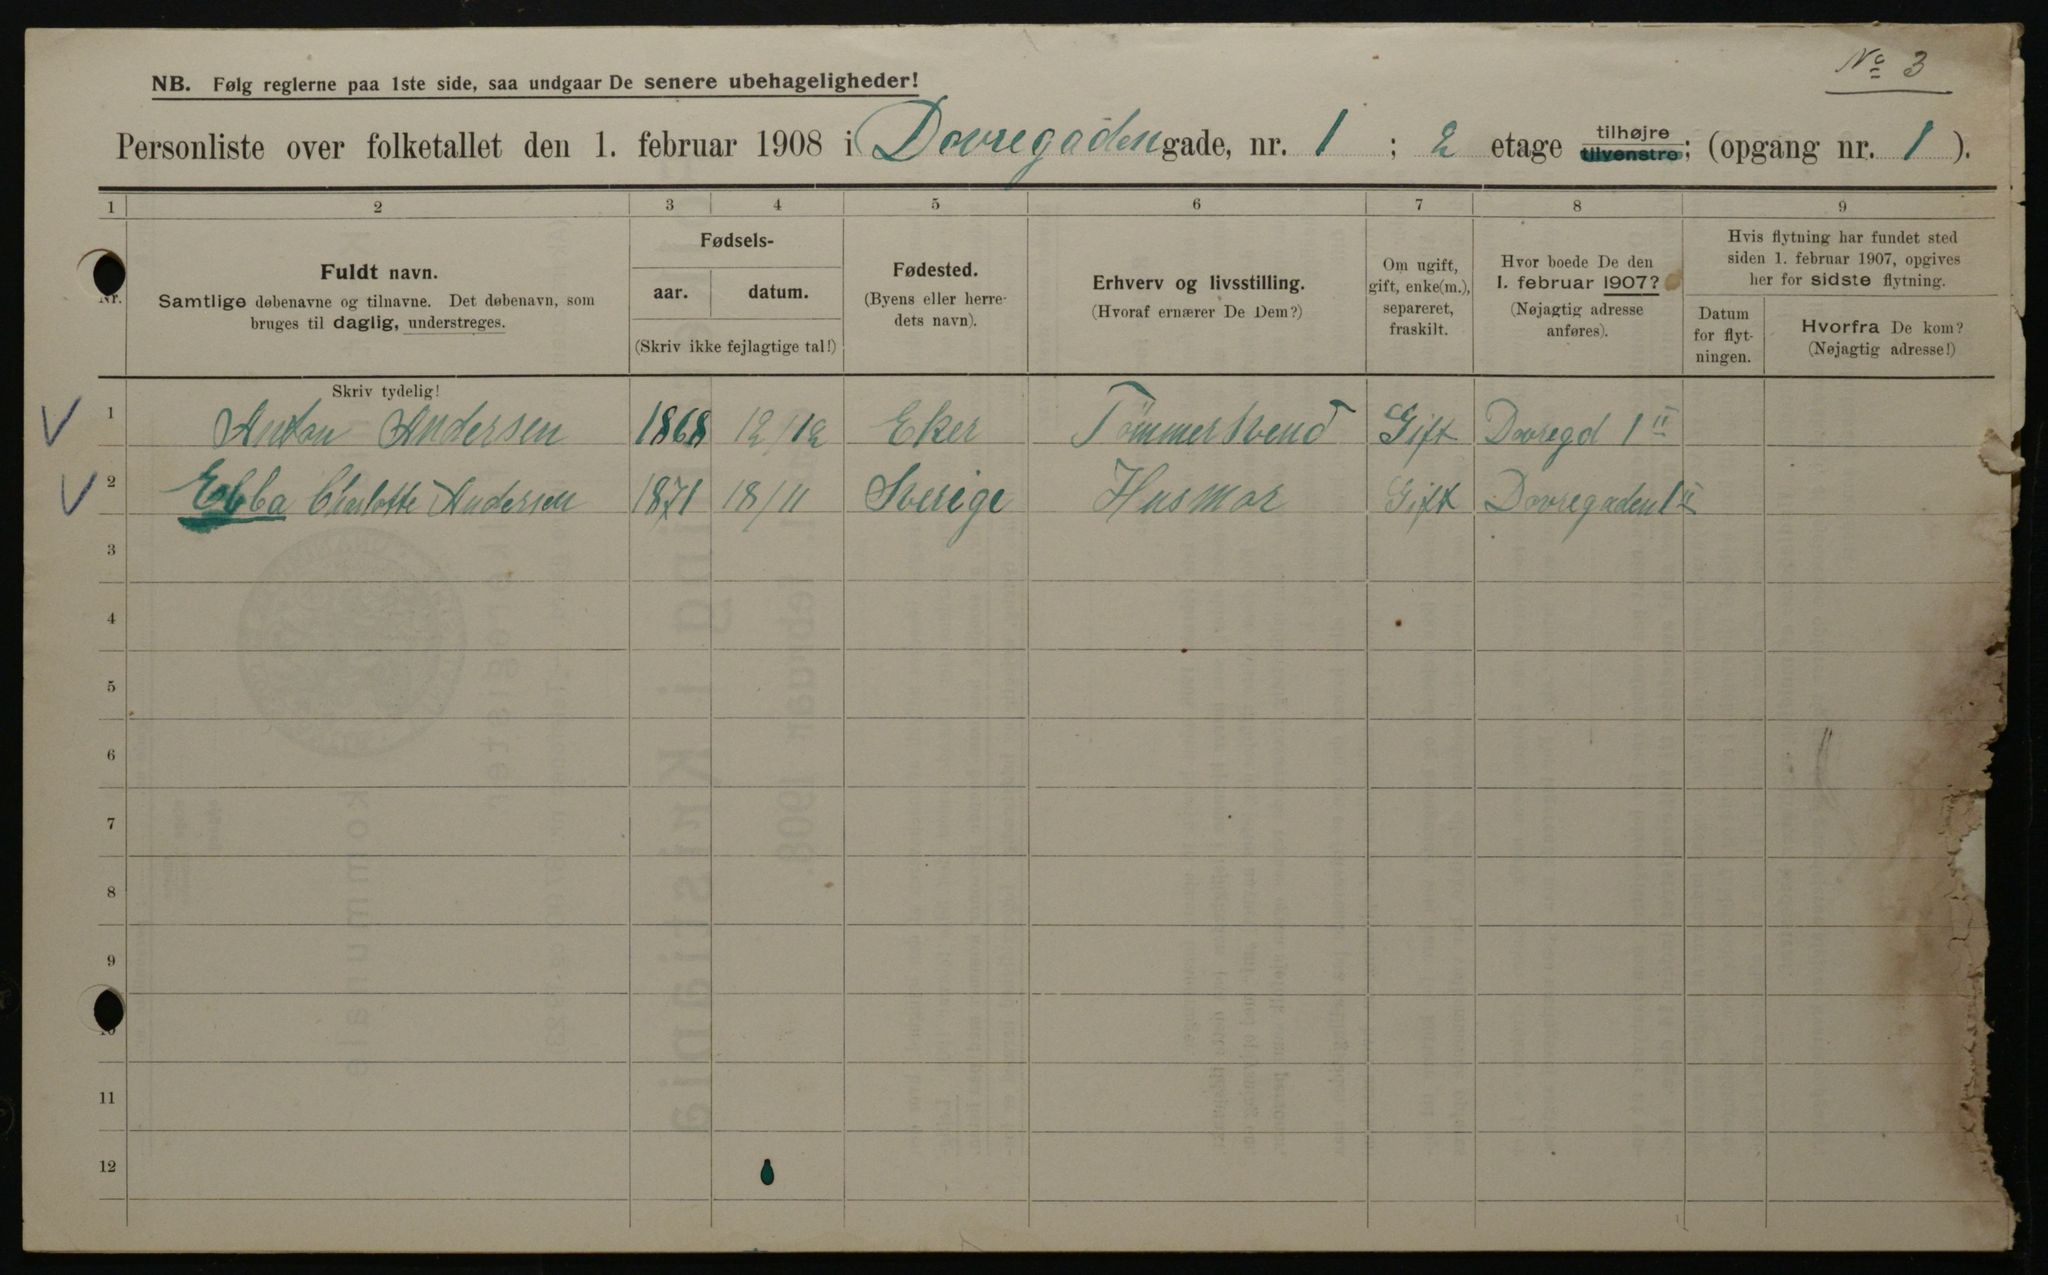 No 3
NB. Følg reglerne paa 1ste side, saa undgaar De senere ubehageligheder!
Personliste over folketallet den 1. februar 1908 i Dovregaden gade, nr. 1 ; 2 etage tilhøjre tilvenstre; (opgang nr. 1 ).
1 2 3 4 5 6 7 8 9
Nr.
Fuldt navn.
Samtlige døbenavne og tilnavne. Det døbenavn, som
bruges til daglig, understreges.
Fødsels-
aar. datum.
(Skriv ikke fejlagtige tal!)
Fødested.
(Byens eller herre-
dets navn).
Erhverv og livsstilling.
(Hvoraf ernærer De Dem?)
Om ugift,
gift, enke(m.),
separeret,
fraskilt.
Hvor boede De den
1. februar 1907?
(Nøjagtig adresse
anføres).
Hvis flytning har fundet sted
siden 1. februar 1907, opgives
her for sidste flytning.
Datum
for flyt-
ningen.
Hvorfra De kom?
(Nøjagtig adresse!)
Skriv tydelig!
1 Anton Andersen 1868 12/12 Eker Tømmersvend Gift Dovregd 1 II
2 Ebba Charlotte Andersen 1871 18/11 Sverige Husmor Gift Dovregaden 1 II
3
4
5
6
7
8
9
10
11
12